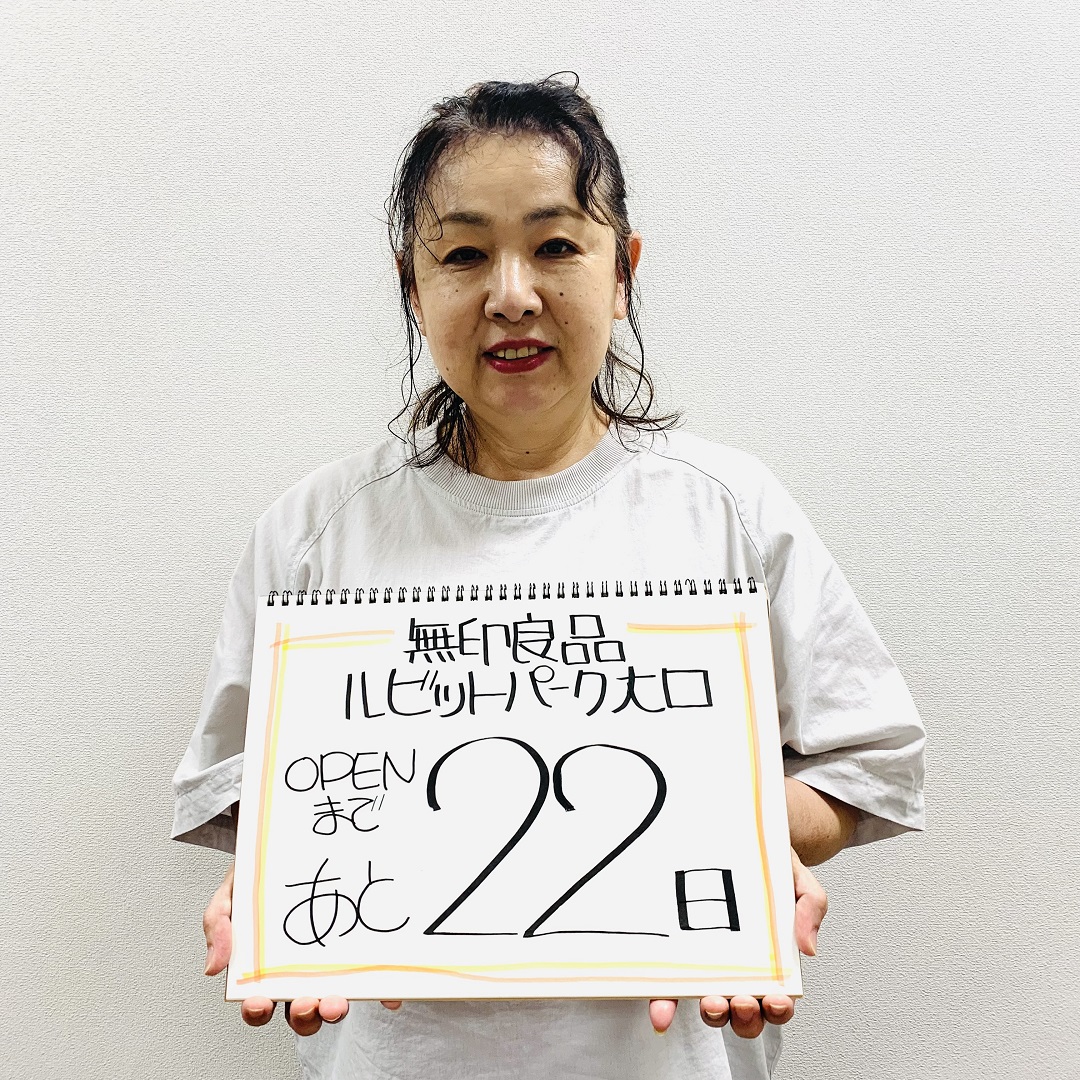 無印良品
ルビットパーク大口
OPEN
まで
あと 22 日